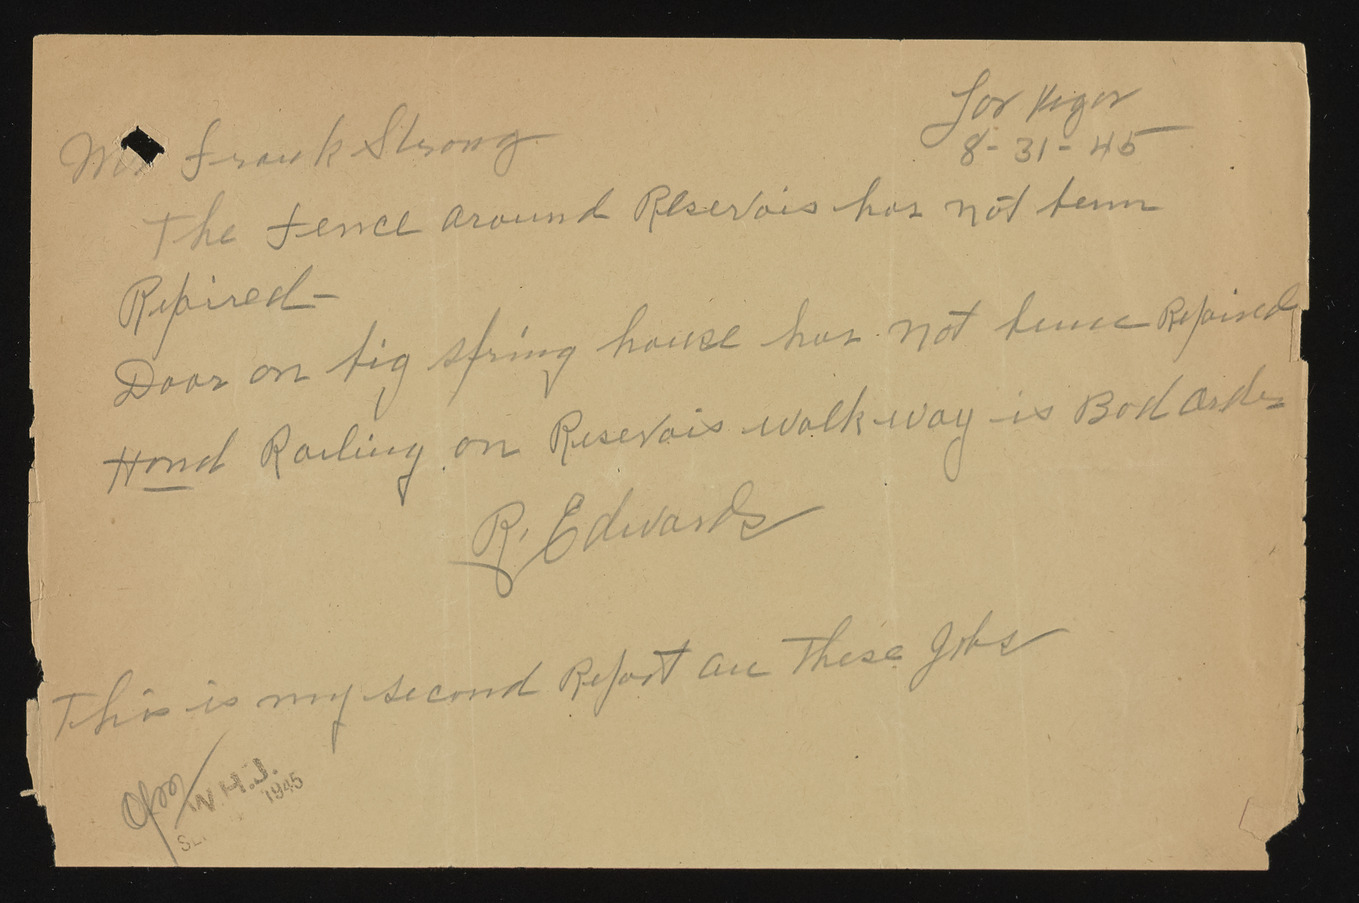 8-31-45
Mr Frank Strong
The Fence around Reservois has not benn
Repired-
Door on big spring house has not benne Repaired
Hand Railing on Reservois walk way is Bad Order
R. Edwards
This is my second Report on These Jobs
W H.J.
1945